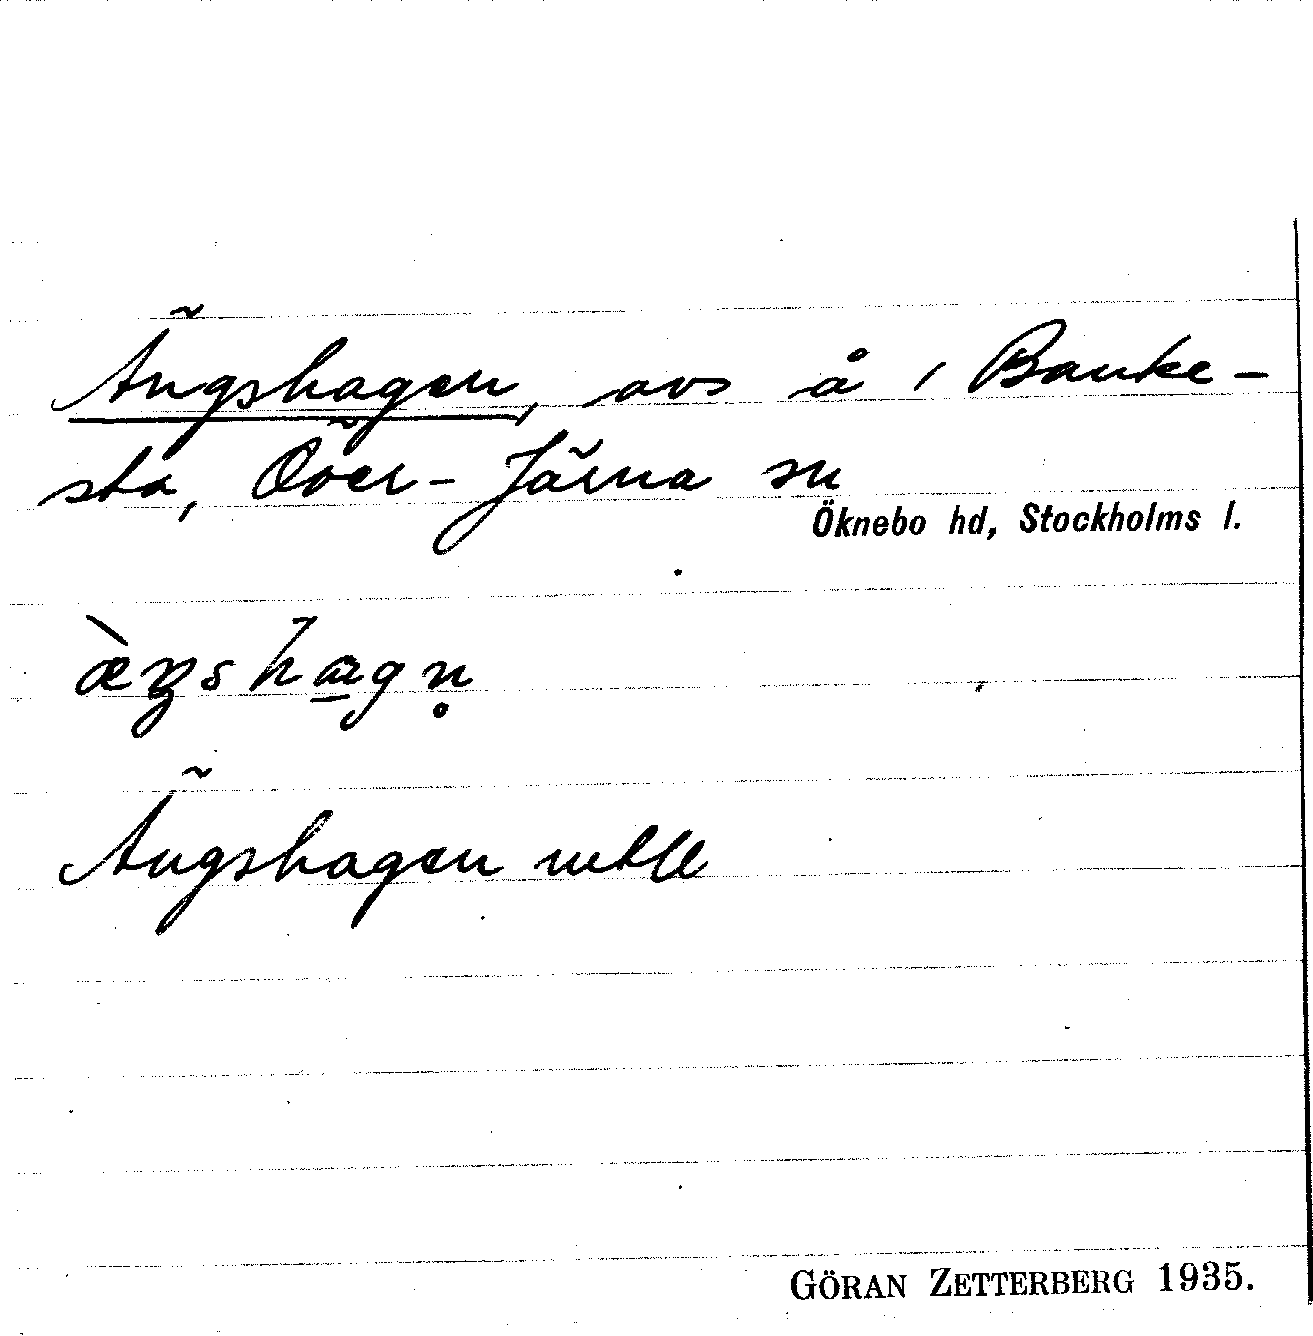 Ängshagen, avs å i Banke-
sta, Över-Järna sn
Öknebo hd, Stockholms l.
æ̀ŋshagn̥
Ängshagen mtll
GÖRAN ZETTERBERG 1935.